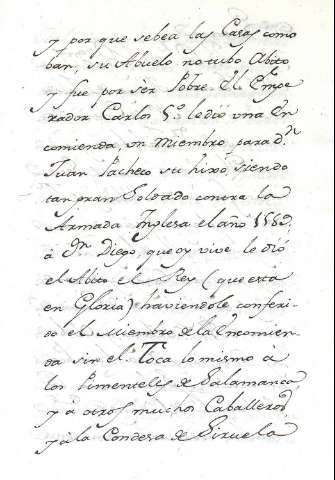 y por que se bea las Casas como
ban, su Abuelo no tubo Abito
y fue por ser Pobre. El Empe
rador Carlos 5º le dió una En
comienda, un Miembro para dⁿ
Juan Pacheco su hixo, siendo
tan gran Soldado contra la
Armada Inglesa el año 1589.
á Dⁿ Diego, que oy vive le dió
el Abito el Rey (que está
en Gloria) haviendole conferi
do el Miembro de la Encomien
da sin el. Toca lo mismo á
los Pimenteles de Salamanca,
y á otros muchos Caballeros,
y á la Condesa de Siruela